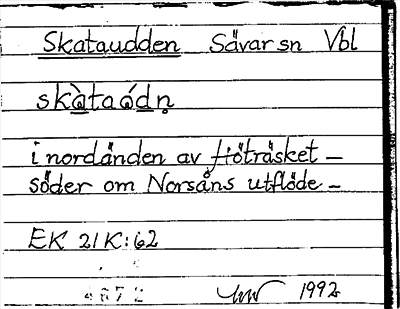 Skataudden Sävar sn Vbl
skàtaó̀dn̥
i nordänden av Höträsket –
söder om Norsåns utflöde –
EK 21K:62
4672
1992